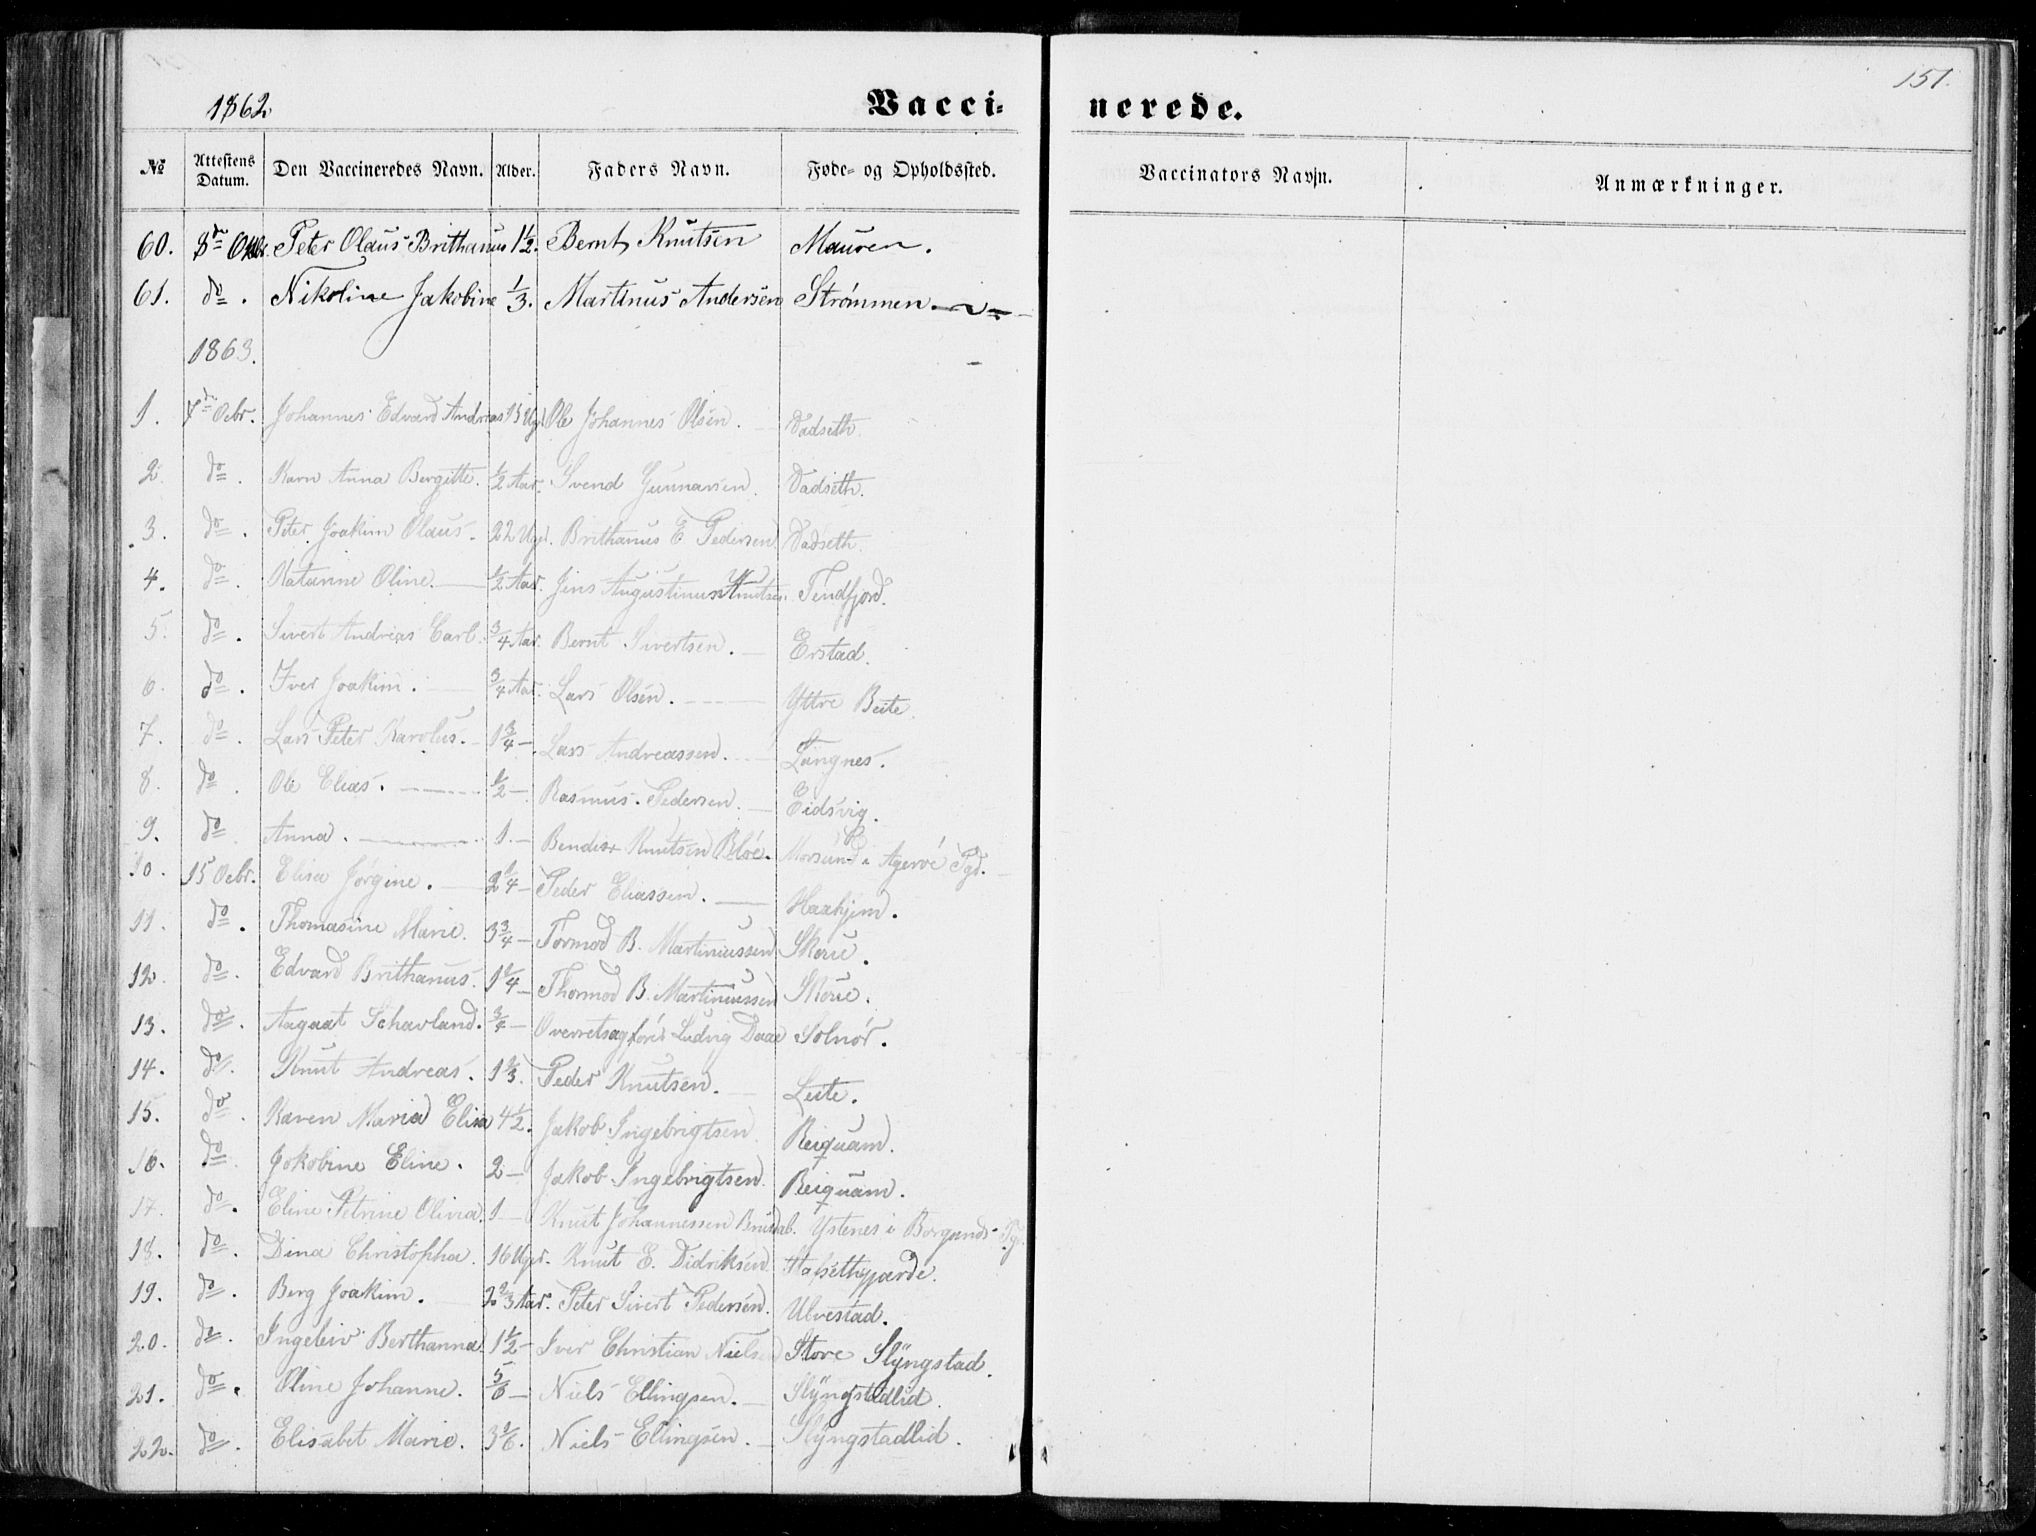 151.
1862
Vacci- nerede.
No Attestens Datum. Den Vaccineredes Navn. Alder. Faders Navn. Føde- og Opholdssted. Vaccinators Navn. Anmærkninger.
60. 8de Octbr. Peter Olaus Brithanus 1 1/2. Bernt Knutsen Mauren.
61. do. Nikoline Jakobine 1/3. Martinus Andersen Strømmen
1863.
1. 7de Octbr. Johannes Edvard Andreas 13 Ugr. Ole Johannes Olsen. Vadseth.
2. do. Karn Anna Bergitte. 1/2 Aar. Svend Gunnarsen. Vadseth.
3. do. Peter Joakim Olaus. 22 Uger. Brithanus E. Pedersen Vadseth.
4. do. Katarine Oline. 1/2 Aar. Jens Augustinus Knutsen. Tendfjord.
5. do. Sivert Andreas Carl. 3/4 Aar. Bernt Sivertsen. Erstad.
6. do. Iver Joakim. 3/4 Aar. Lars Olsen. Yttre Beite.
7. do. Lars Peter Karolus. 1 3/4 Lars Andreassen. Langnes.
8. do. Ole Elias. 1/2 Rasmus Pedersen. Eidsvig.
9. do. Anna. 1. Bendix Knutsen Bløe. Morsund i Agerøe Pgd.
10. 15 Octbr. Elisa Jørgine. 2 1/4 Peder Eliassen. Haahjem.
11. do. Thomasine Marie. 3 3/4 Tormod B. Martiniussen Skoue.
12. do. Edvard Brithanus. 1 1/4 Thormod B. Martiniussen Skoue.
13. do. Aagaat Schavland. 3/4 Overretsagfører Ludvig Daae Solnør.
14. do. Knut Andreas. 1 2/3. Peder Knutsen. Leite.
15. do. Karen Maria Elisa 4 1/2. Jakob Ingebrigtsen Reiquam.
16. do. Jokobine Eline. 2 Jakob Ingebrigtsen. Reiquam.
17. do. Eline Petrine Olivia. 1 Knut Johannessen Brusdal. Ystenes i Borgunds Pgd.
18. do. Dina Christopha. 16 Uger. Knut E. Didriksen Hafsethgjærde.
19. do. Berg Joakim. 2 2/3 Aar. Peter Sivert Pedersen. Ulvestad.
20. do. Ingeleiv Berthanna. 1 1/2 Iver Christian Nielsen Store Slyngstad.
21. do. Oline Johanne. 5/6 Niels Ellingsen. Slyngstadlid.
22. do. Elisabet Marie. 3 1/6. Niels Ellingsen. Slyngstadlid.